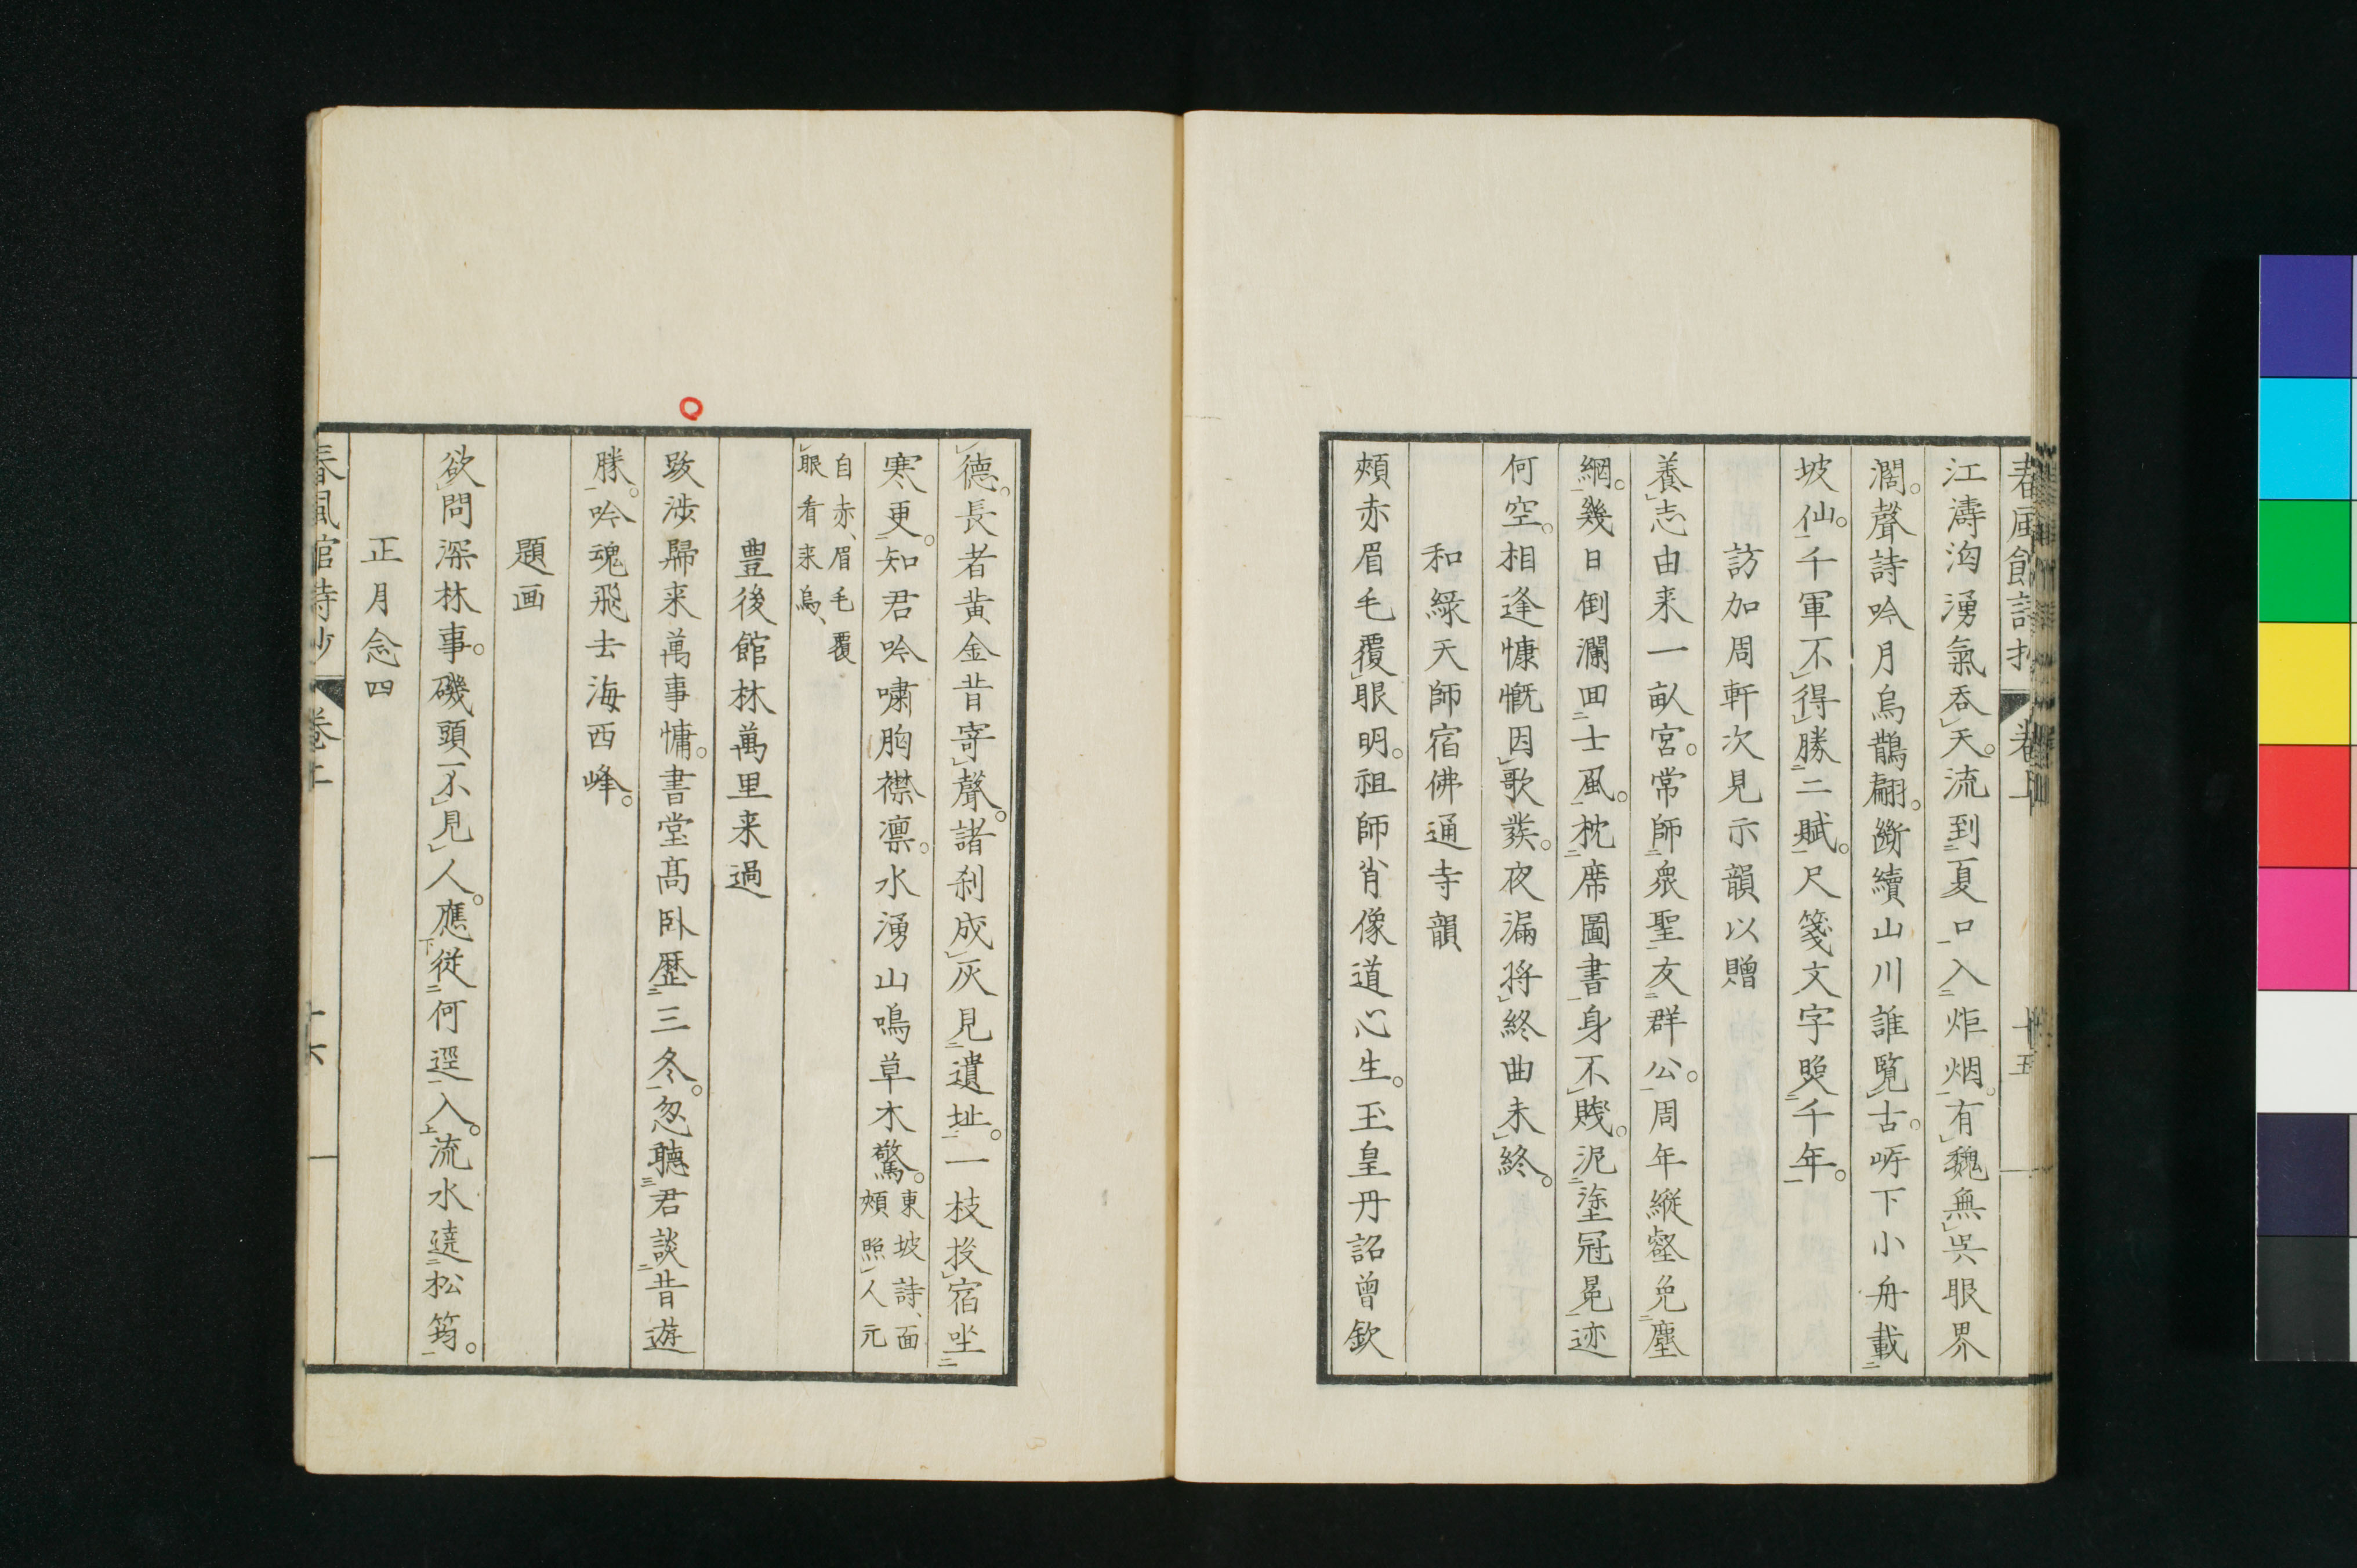 春風館詩抄 卷上 十五
江濤洶湧氣吞天。流到夏口入炬烟。有魏無吳眼界
濶。聲詩吟月烏鵲翩。斷續山川誰覧古。岈下小舟載
坡仙。千軍不得勝二賦。尺箋文字照千年。
訪加周軒次見示韻以贈
養志由来一畝宮。常師衆聖友群公。周年縦壑免塵
網。幾日倒瀾回士風。枕席圖書身不賤。泥塗冠冕迹
何空。相逢慷慨因歌發。夜漏将終曲未終。
和緑天師宿佛通寺韻
頰赤眉毛覆眼明。祖師肖像道心生。玉皇丹詔曾欽
德。長者黄金昔寄聲。諸刹成灰見遺址。一枝投宿坐
寒更。知君吟嘯胸襟凛。水湧山鳴草木驚。東坡詩、面
頰照人元
自赤、眉毛覆
眼看来烏、
豊後館林萬里来過
跋渉歸来萬事慵。書堂髙臥歴三冬。忽聽君談昔遊
勝。吟魂飛去海西峰。
題画
欲問深林事。磯頭不見人。應従何逕入。流水遶松筠。
正月念四
春風館詩抄 卷上 十六